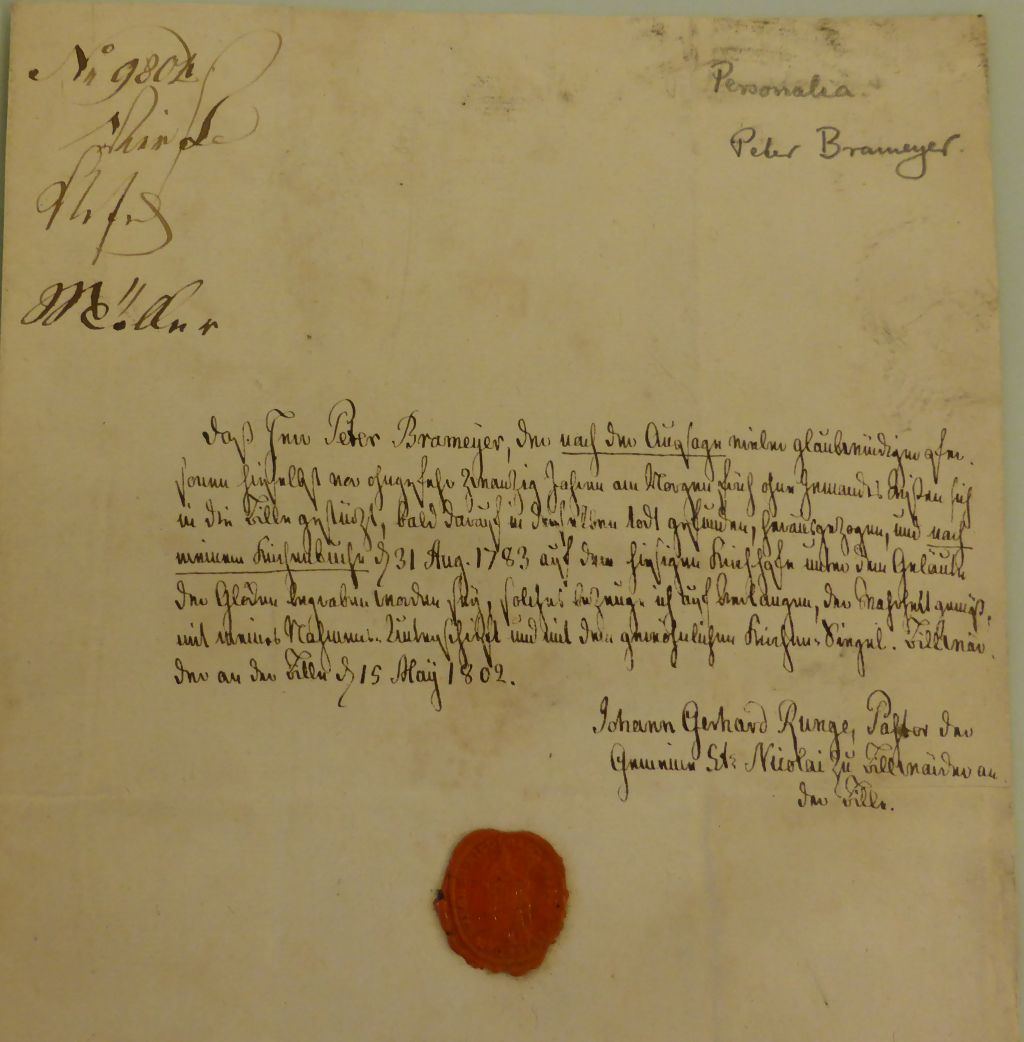 No 9804
Personalia.
Peter Brameyer.
Müller
Daß Herr Peter Brameyer, der nach der Aussage vieler glaubwürdigen Per-
sonen hieselbst vor ohngefehr zwanzig Jahren am Morgen früh ohne Jemandes Wissen sich
in die Bille gestürzt, bald darauf in derselben todt gefunden, herausgezogen, und nach
meinem Kirchenbuche d 31 Aug. 1783 auf dem hiesigen Kirchhofe unter dem Geläute
der Glocken begraben worden sey, solches bezeuge ich auf Verlangen, der Wahrheit gemäß,
mit meines Nahmens-Unterschrift und mit dem gewöhnlichen Kirchen-Siegel. Billwär-
der an der Bille d 15 May 1802.
Johann Gerhard Runge, Pastor der
Gemeine St: Nicolai zu Billwärder an
der Bille.